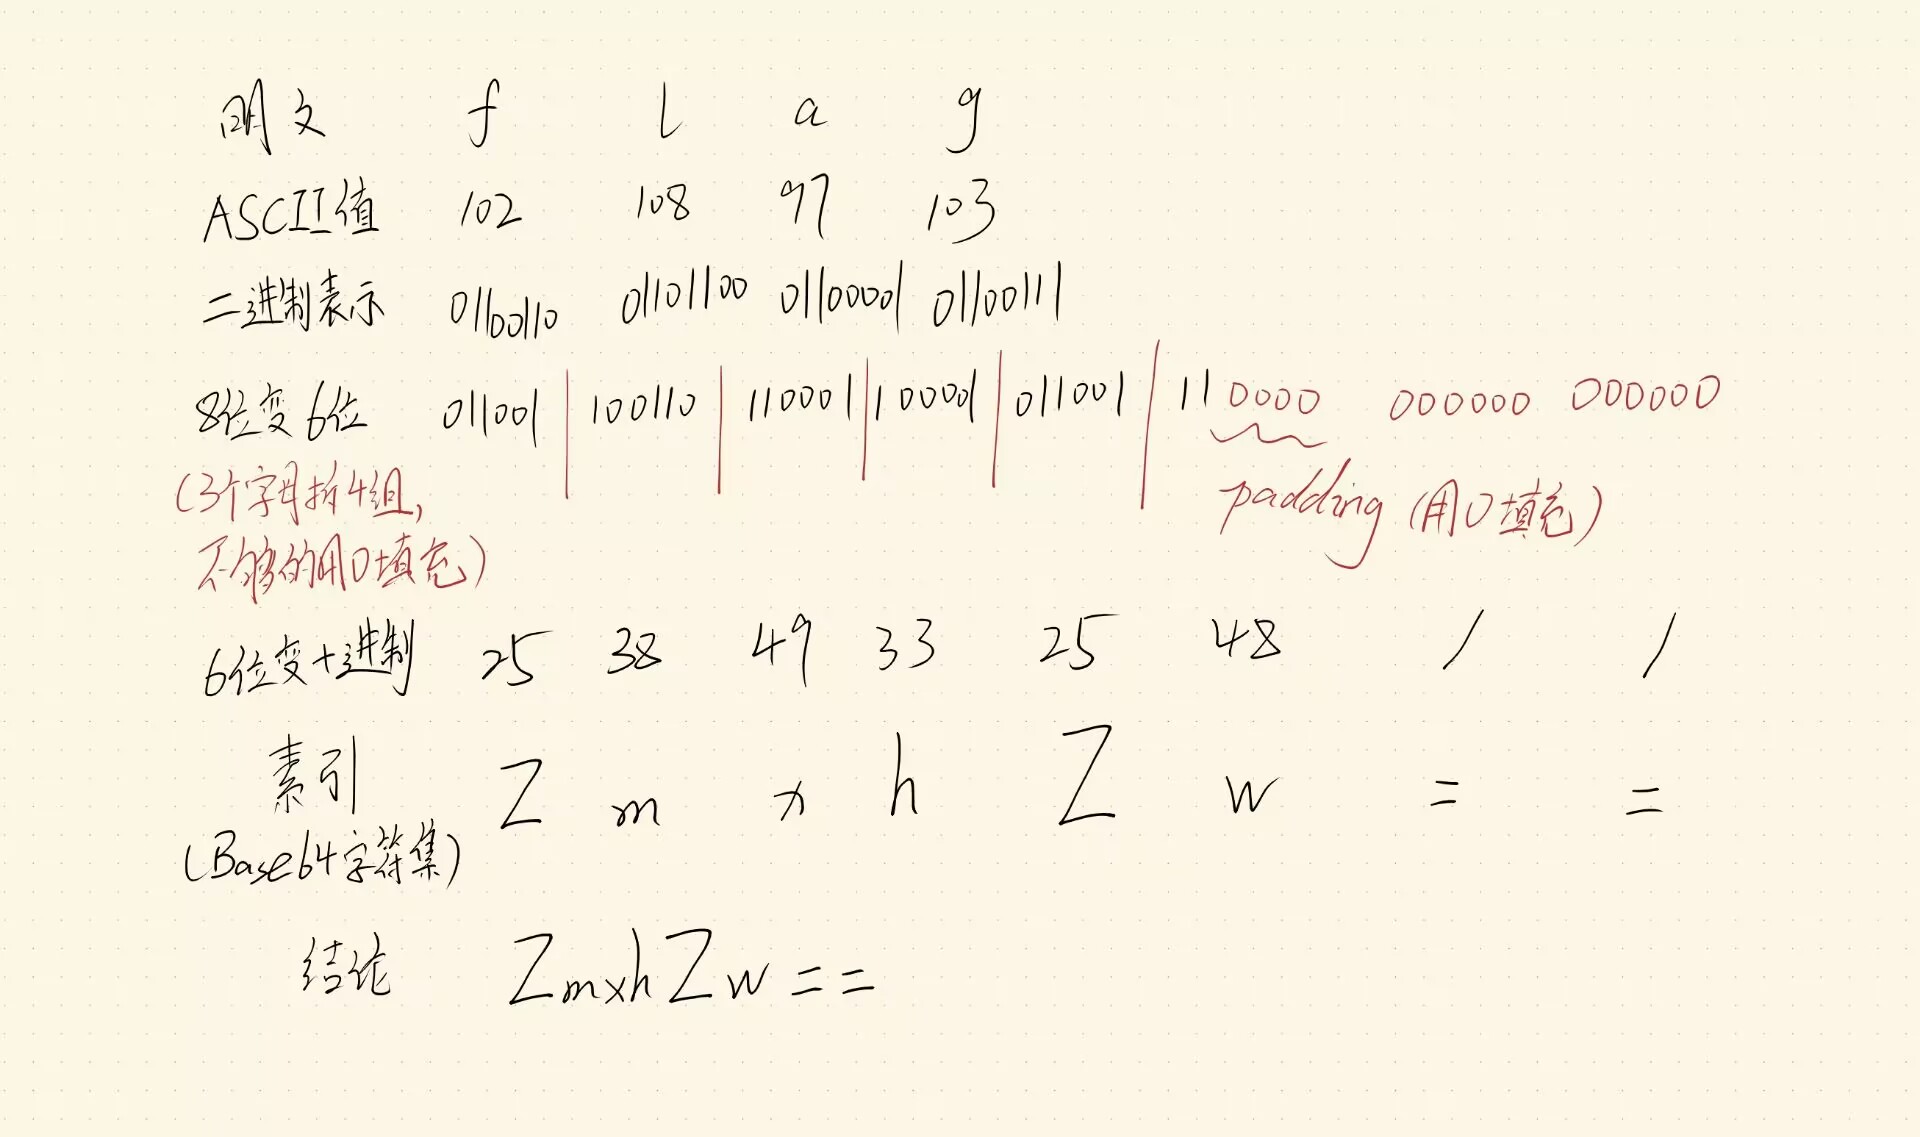 明文 f l a g
ASCII值 102 108 97 103
二进制表示 01100110 01101100 01100001 01100111
8位变6位 011001 | 100110 | 110001 | 100001 | 011001 | 110000 000000 000000
(3个字母拆4组,
不够的用0填充)
padding (用0填充)
6位变十进制 25 38 49 33 25 48 / /
索引 Z m x h Z w = =
(Base64字符集)
结论 ZmxhZw==